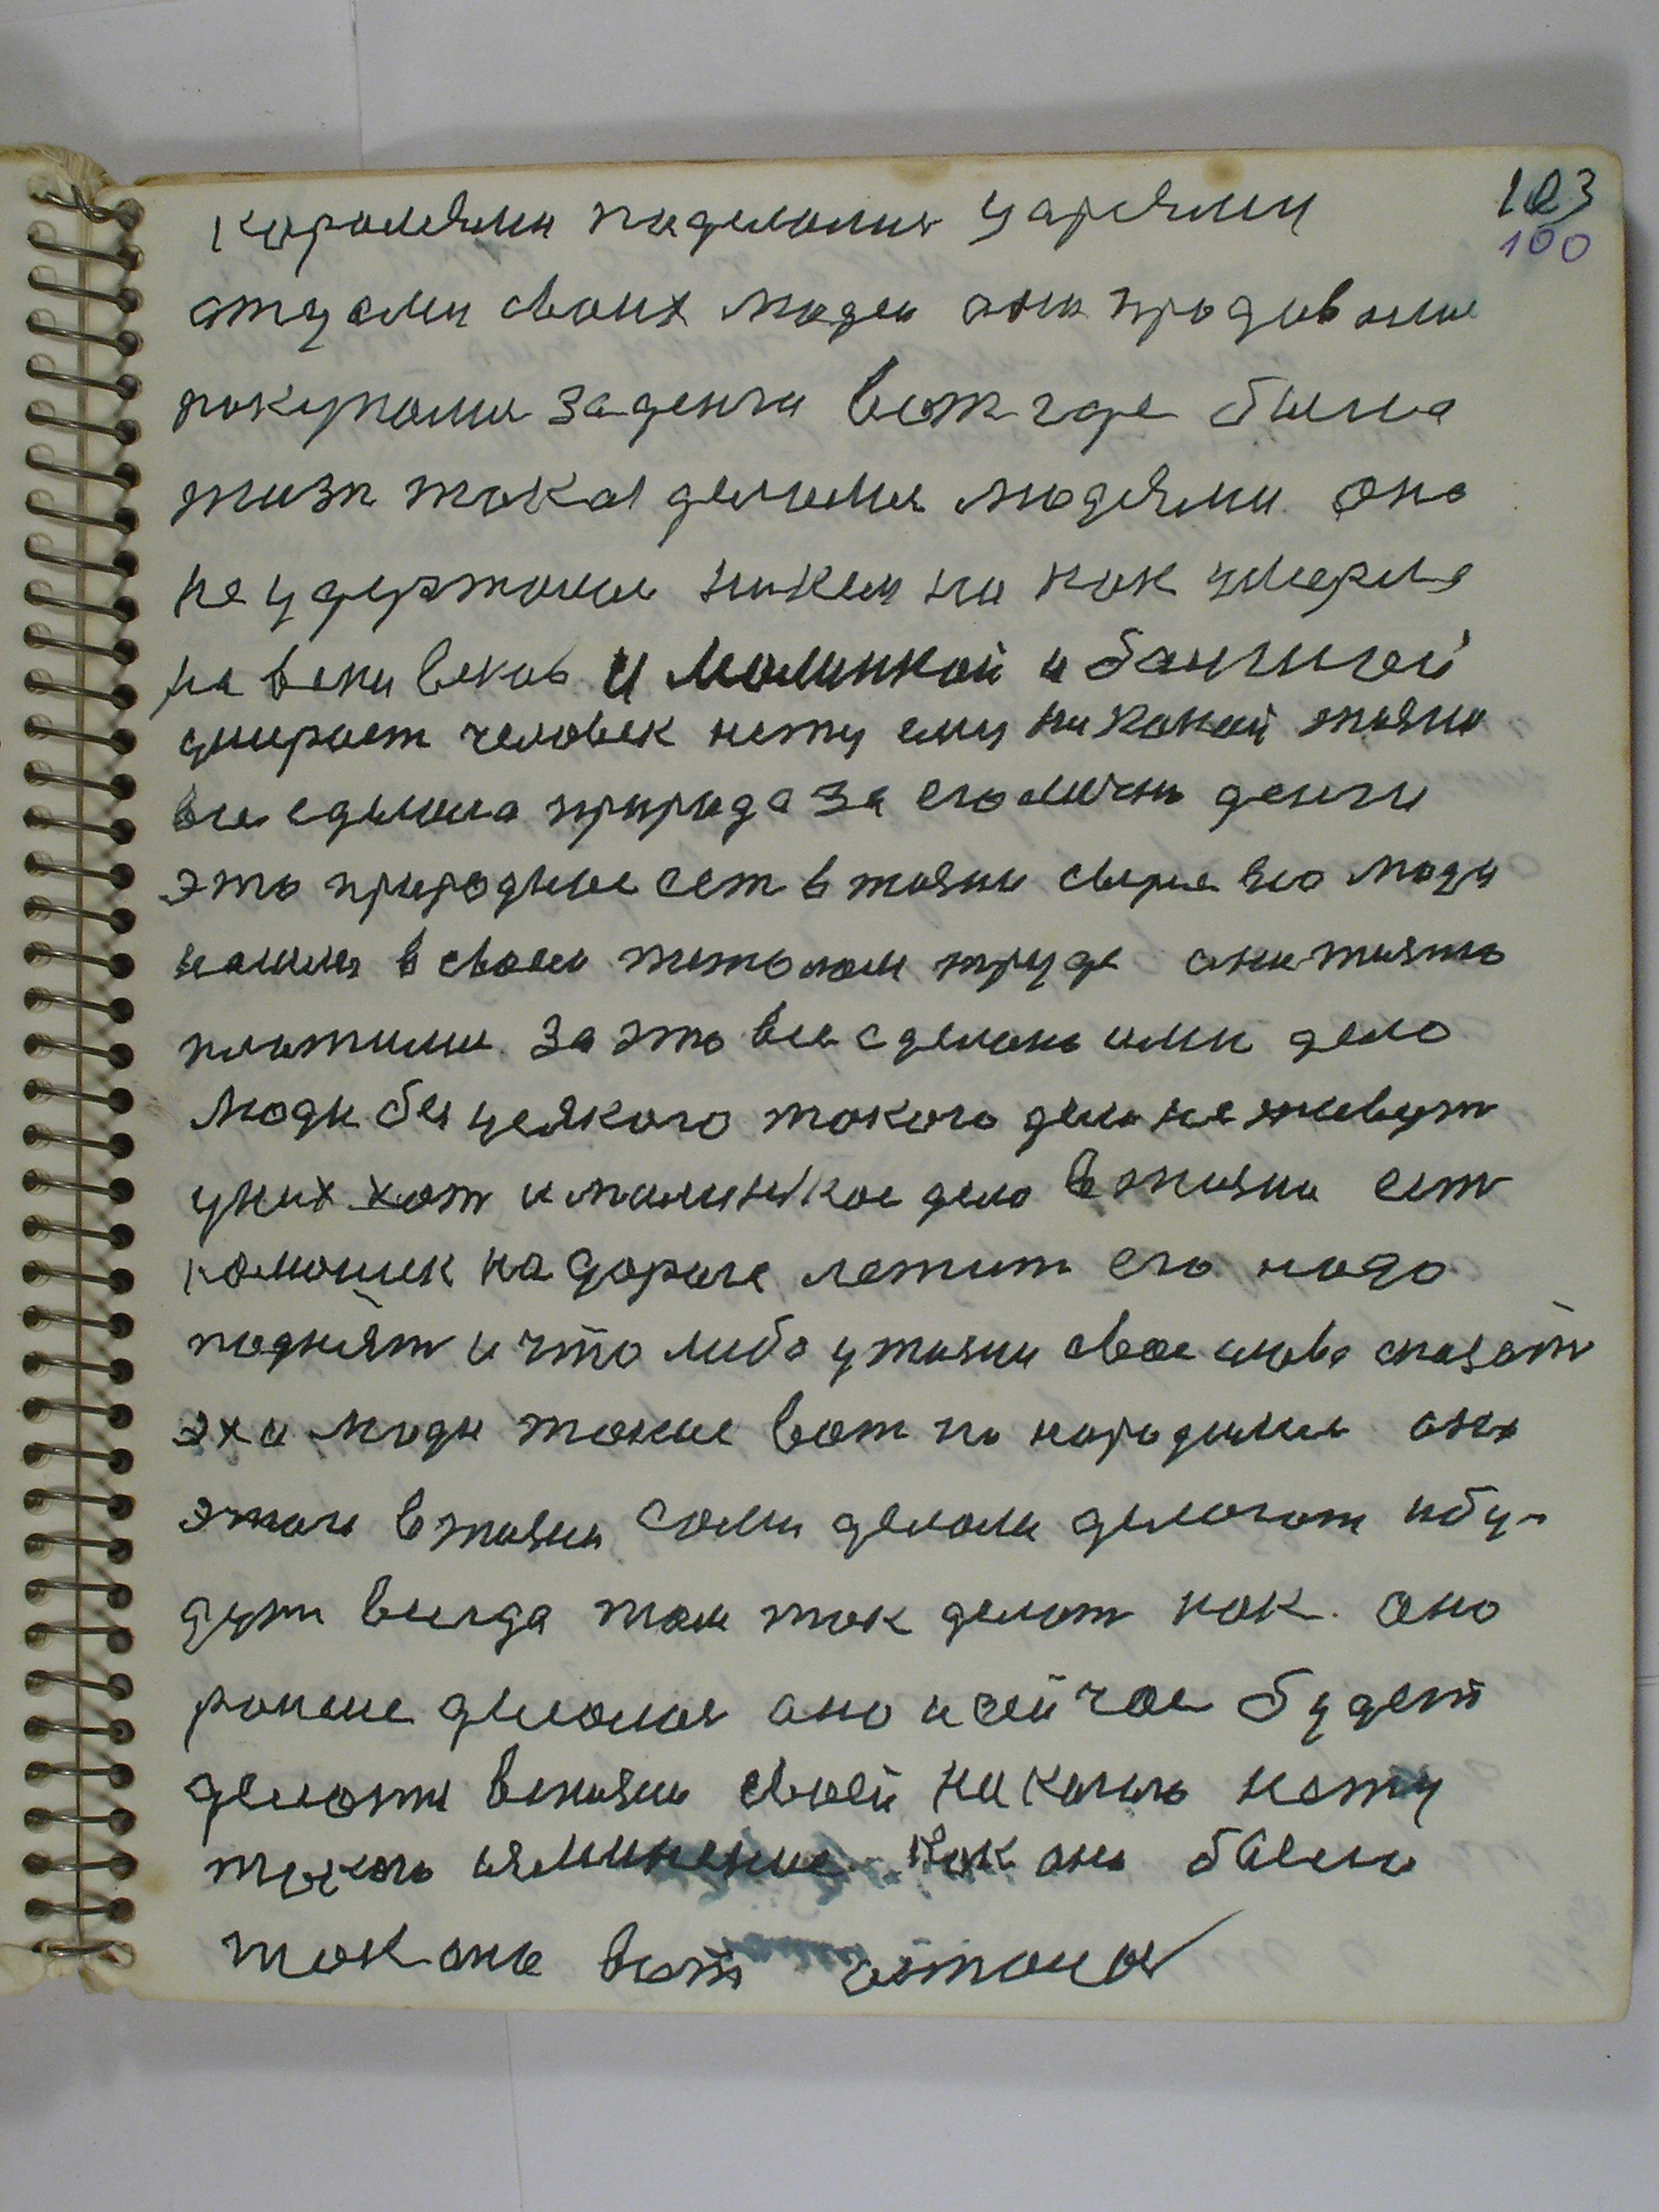 123
100
королями паделалис царями
атцами своих людей ани продивалис
покупалис за денги вот где была
жизн такая делилис людями она
не удержалас никем ни как умерла
на веки веков и малинкай и балшой
умирает человек нету ему никакой жизни
все сделала природа за его личнь денги
это природное ест в жизни сырье его люди
нашли в своем житолом труде ани жизть
платили за это все сделань ими дело
люди без усякого такого дела не живут
у них хот и малинькое дело в жизни ест
камошик на дароге лежит его надо
поднят и что либо у жизни свое слова сказат
эх и люди такие вот по народилис аних
этаги в жизни сами делали делогот и бу-
дут всегда там так делат как ано
ранше делолос ано и сейчас будет
делатя в жизни своей ни какиго нету
такого изминение как ани были
так оне вот астался